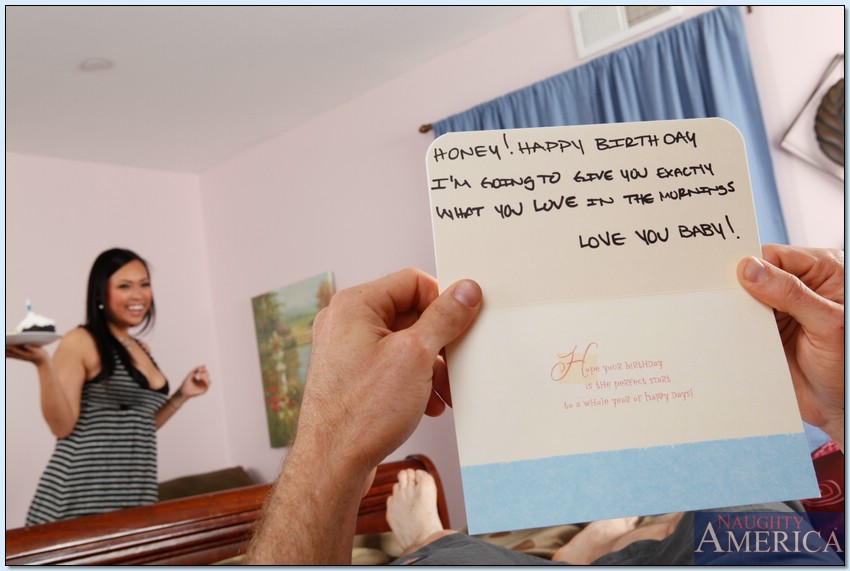 HONEY! HAPPY BIRTHDAY
I'M GOING TO GIVE YOU EXACTLY
WHAT YOU LOVE IN THE MORNINGS
LOVE YOU BABY!
Hope your birthday
is the perfect start
to a whole year of happy days!
NAUGHTY
AMERICA